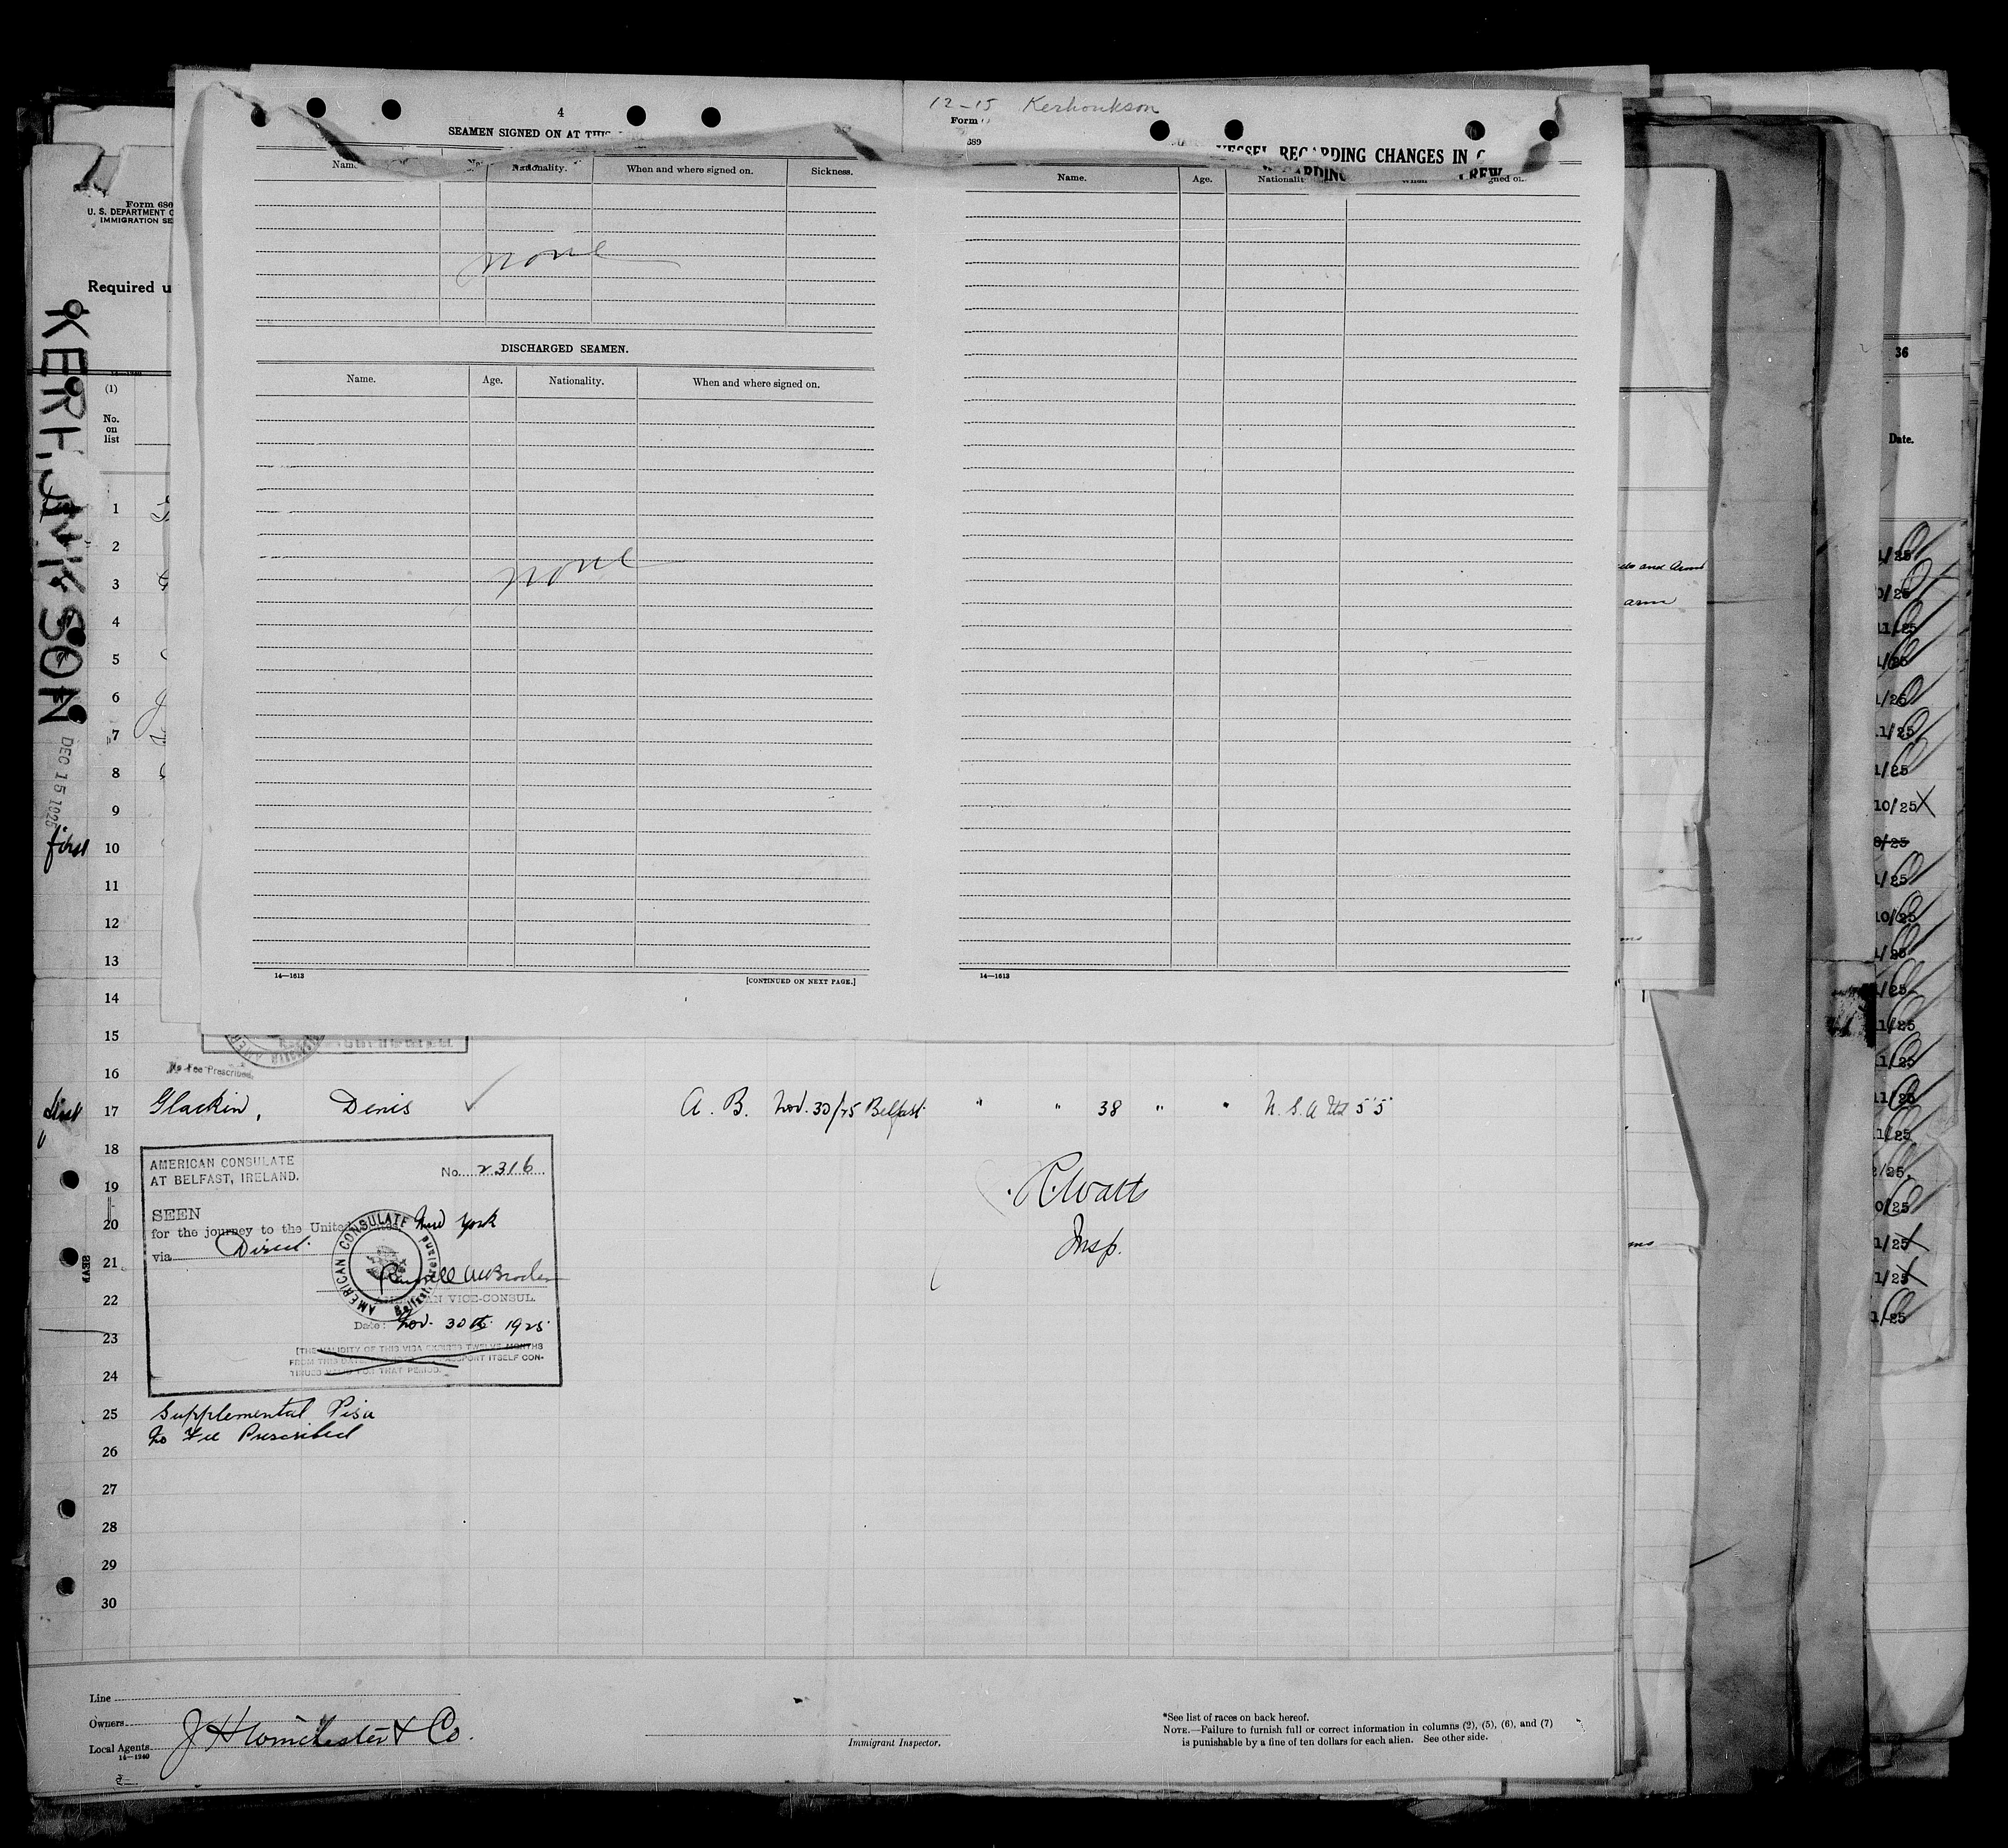 12-15 Kerhonkson
Form
689
4
SEAMEN SIGNED ON AT THIS
VESSEL REGARDING CHANGES IN C
Nationality.
When and where signed on.
Sickness.
none
DISCHARGED SEAMEN.
Name.
Age.
Nationality.
When and where signed on.
none
14—1613
[CONTINUED ON NEXT PAGE.]
Name.
Age.
14—1613
Form 680
U. S. DEPARTMENT
IMMIGRATION SE
Required u
(1)
No.
on
list
DEC 15 1925
first
1
2
3
4
5
6
7
8
9
10
11
12
13
14
15
16
No Fee Prescribed.
17 Glackin, Denis A. B. Nov. 30/25 Belfast " " 38 " "
18
19
20
21
22
23
24
25
26
27
28
29
30
AMERICAN CONSULATE
AT BELFAST, IRELAND.
No. 2316
SEEN
for the journey to the United New York
via Direct.
AMERICAN CONSULATE
Belfast, Ireland
VICE-CONSUL.
Date: Nov. 30th 1925
[THE VALIDITY OF THIS VISA EXPIRES TWELVE MONTHS
FROM THIS DATE PASSPORT ITSELF CON-
TINUES VALID FOR THAT PERIOD.
Supplemental Visa
No Fee Prescribed
R. Watts
Insp.
Line
Owners
Local Agents J H Winchester & Co.
14—1240
Immigrant Inspector.
*See list of races on back hereof.
NOTE.—Failure to furnish full or correct information in columns (2), (5), (6), and (7)
is punishable by a fine of ten dollars for each alien. See other side.
and arms
arm
36
Date.
1/25
0/25
11/25
1/25
1/25
11/25
1/25
10/25
1/25
10/25
1/25
1/25
11/25
11/25
11/25
1/25
2/25
0/25
1/25
1/25
1/25